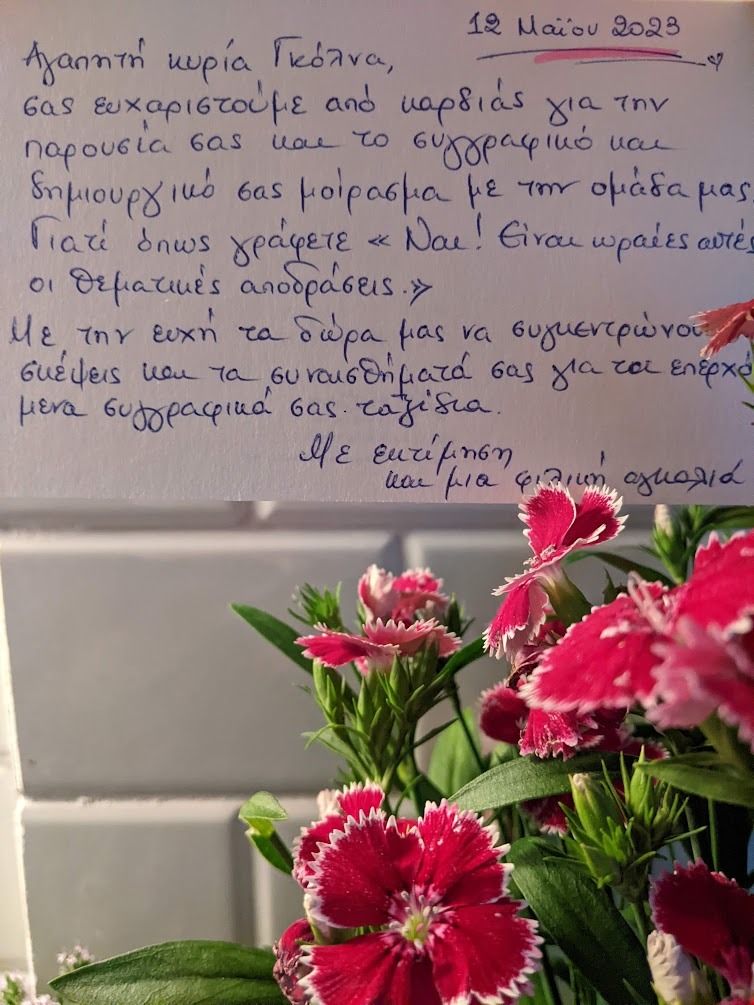 12 Μαΐου 2023
Αγαπητή κυρία Γκόλνα,
σας ευχαριστούμε από καρδιάς για την
παρουσία σας και το συγγραφικό και
δημιουργικό σας μοίρασμα με την ομάδα μας.
Γιατί όπως γράφετε « Ναι! Είναι ωραίες αυτές
οι θεματικές αποδράσεις.»
Με την ευχή τα δώρα μας να
σκέψεις και τα συναισθήματά σας για τα επερχό
μενα συγγραφικά σας ταξίδια.
Με εκτίμηση
και μια φιλική αγκαλιά